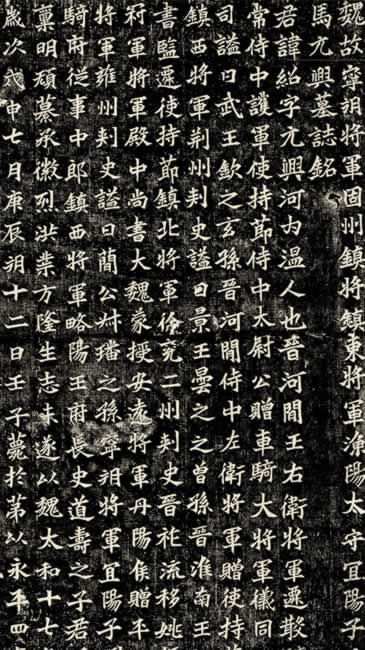 魏故寧朔將軍固州鎮將鎮東將軍漁陽太守宜陽子
馬元興墓誌銘
君諱紹字元興河內溫人也晉河間王右衛將軍遷散
常侍中護軍使持節侍中太尉公贈車騎大將軍儀同
司謚曰武王欽之玄孫晉河間侍中左衛將軍贈使持
鎮西將軍荊州刺史謚曰景王曇之之曾孫晉淮南王
書監遷使持節鎮北將軍徐兗二州刺史晉祚流移姚
冠軍將軍殿中尚書大魏蒙授安遠將軍丹陽侯贈平
將軍雍州刺史謚曰簡公叔璠之孫寧朔將軍宜陽子
騎府從事中郎鎮西將軍略陽王府長史道壽之子君
稟明頑纂承徽烈洪業方隆生志未遂以魏太和十七
歲次戊申七月庚辰朔十二日壬子薨於第以永平四